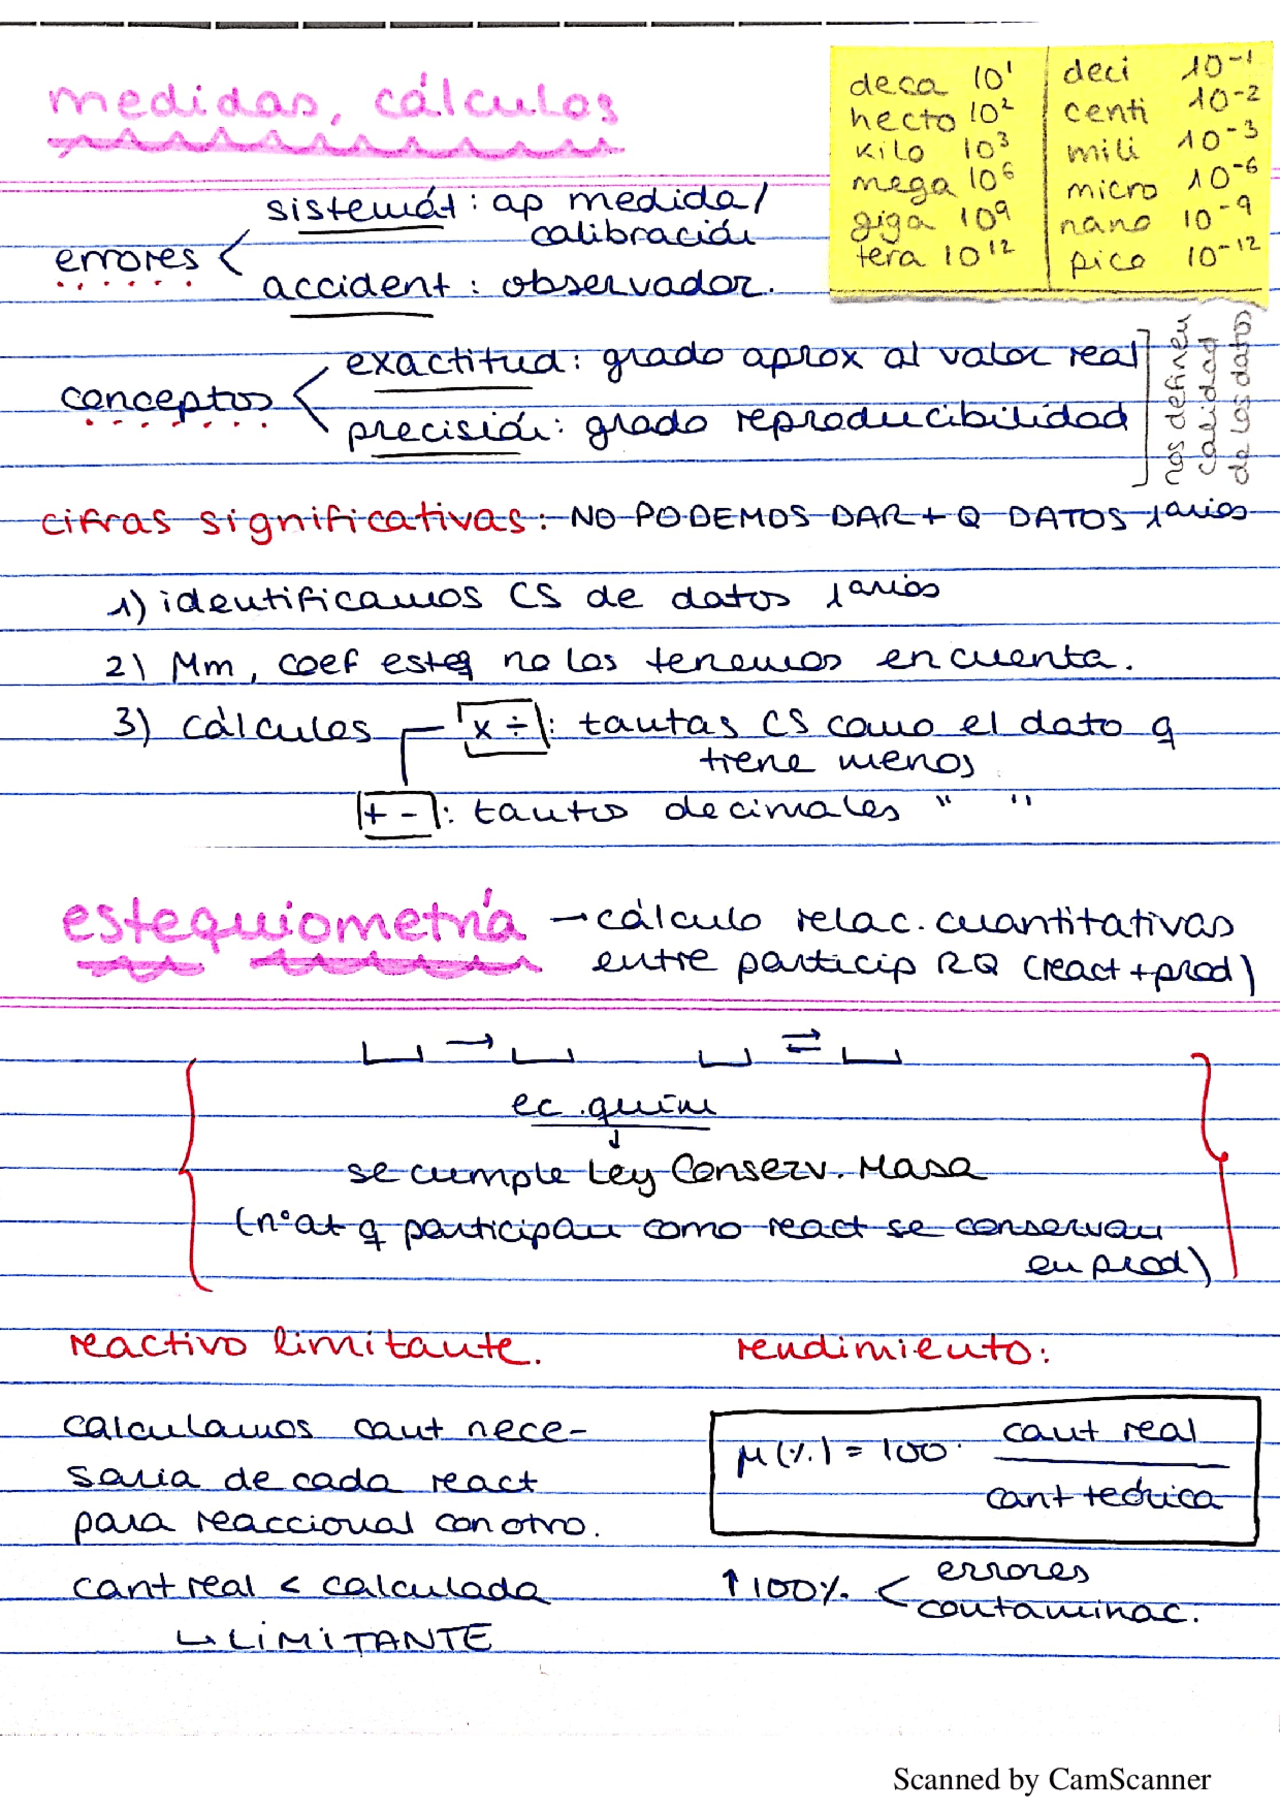 medidas, cálculos
deca 10¹
hecto 10²
kilo 10³
mega 10⁶
giga 10⁹
tera 10¹²
deci 10⁻¹
centi 10⁻²
mili 10⁻³
micro 10⁻⁶
nano 10⁻⁹
pico 10⁻¹²
errores <
sistemát: ap medida/
calibración
accident: observador.
conceptos <
exactitud: grado aprox al valor real
precisión: grado reproducibilidad
nos definen
calidad
de los datos
cifras significativas: NO PODEMOS DAR + Q DATOS 1arios
1) identificamos CS de datos 1arios
2) Mm, coef esteq no los tenemos en cuenta.
3) cálculos
x ÷ : tantas CS como el dato q
tiene menos
+ - : tantos decimales " "
estequiometría → cálculo relac. cuantitativas
entre particip RQ (react + prod)
→ ⇌
ec. quím
↓
se cumple Ley Conserv. Masa
(nº at q participan como react se conservan
en prod)
reactivo limitante.
calculamos cant nece-
saria de cada react
para reaccional con otro.
cant real < calculada
↳ LIMITANTE
rendimiento:
μ (%) = 100 · cant real
cant teórica
↑ 100% < errores
contaminac.
Scanned by CamScanner